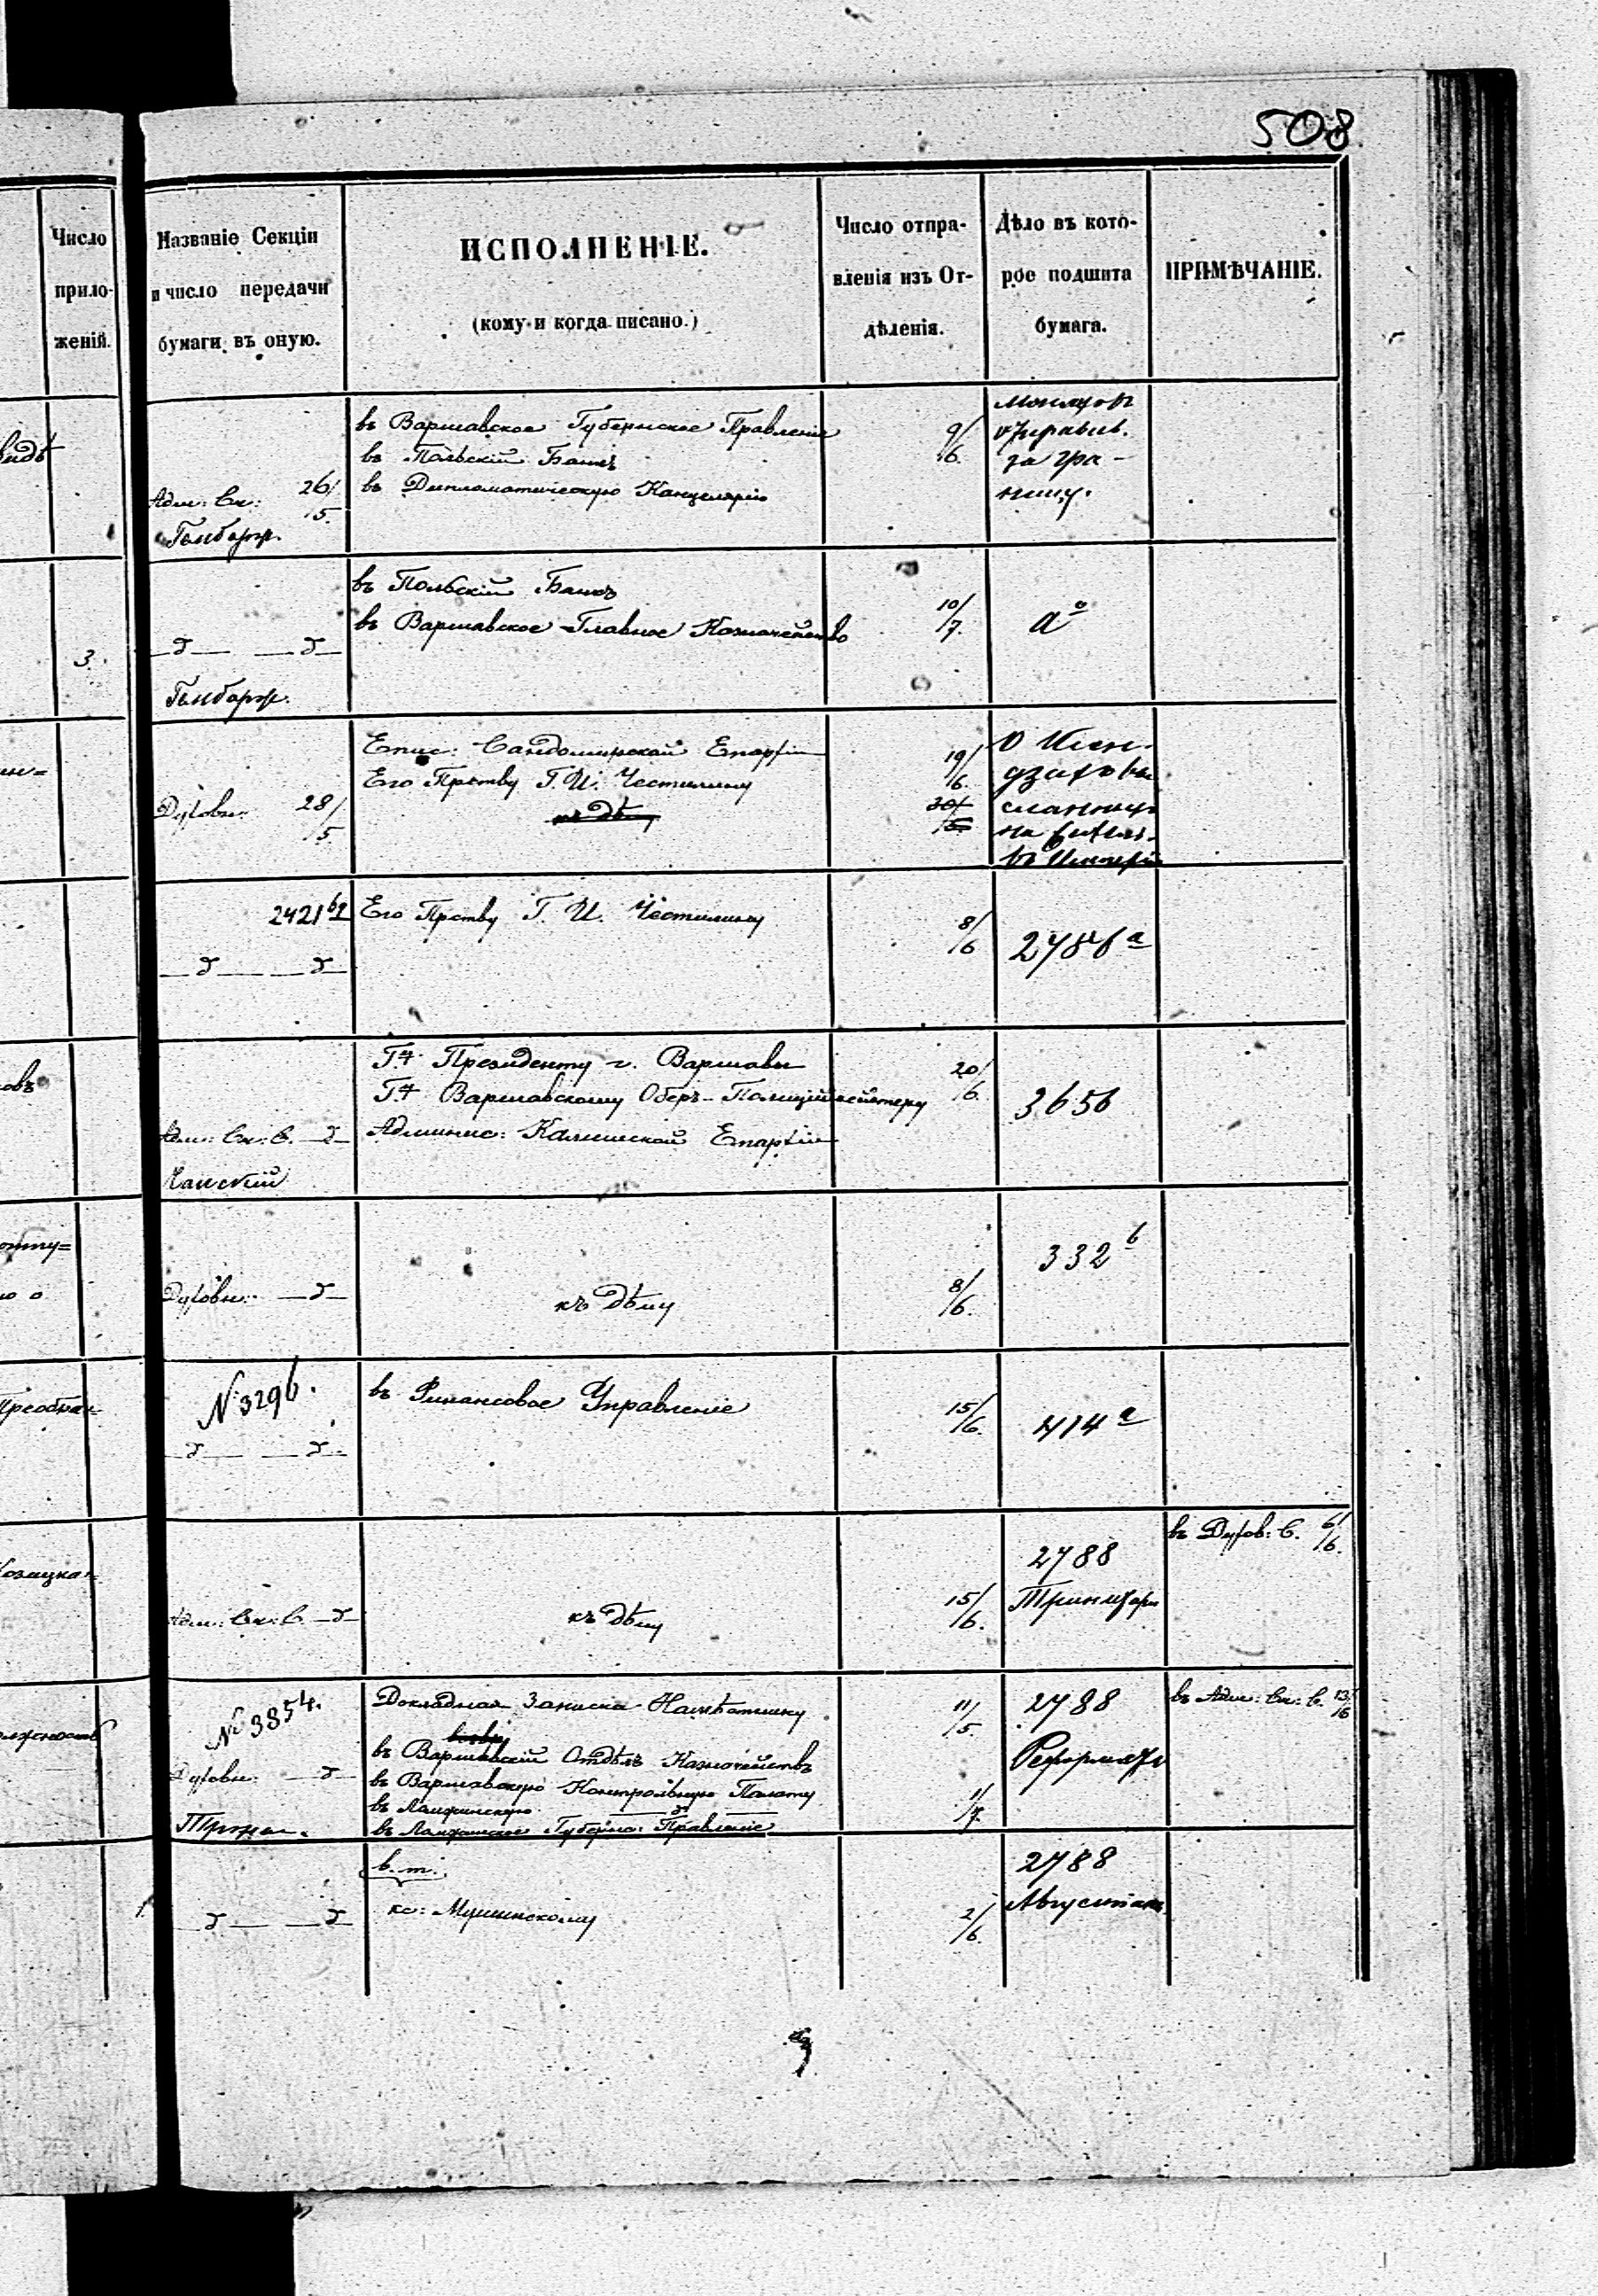 508
Число
прило-
женій.
Названіе Секціи
и число передачи
бумаги въ оную.
ИСПОЛНЕНІЕ.
(кому и когда писано.)
Число отпра-
вленія изъ От-
дѣленія.
Дѣло въ кото-
рое подшита
бумага.
ПРИМѢЧАНІЕ.
Адм: Ск: 26/5.
Гинбарж.
въ Варшавское Губернское Правленіе
въ Польскій Банкъ
въ Дипломатическую Канцелярію
9/6.
за гра-
ницу.
3.
Гинбарж.
въ Польскій Банкъ
въ Варшавское Главное Казначейство
10/7.
аº
Духовн: 28/5.
Епис: Сандомирской Епархіи
Его Прству Г. И. Честилину
къ дѣлу
19/6.
О Ксен-
дзахъ вы
сланныхъ
на жит.
въ Имперію
2421
Его Прству Г. И. Честилину
8/6
Адм: Ск: С.
Чанскій
Г. Президенту г. Варшавы
Г. Варшавскому Оберъ-Полиціймейстеру
Админис: Калишской Епархіи
20/6.
3656
Духовн:
къ дѣлу
8/6.
332 б
№ 3296.
въ Финансовое Управленіе
15/6.
414 а
Адм: Ск: С.
къ дѣлу
15/6.
2788
Тринитары
въ Духов: С. 6/6.
№ 3854.
Духовн:
Докладная Записка Намѣстнику
въ Варшавскій Отдѣлъ Казначействъ
въ Варшавскую Контрольную Палату
въ Ломжинскую
въ Ломжинское Губерн: Правленіе
11/5.
1/7.
2788
Реформаты
въ Адм: Ск: С. 13/6
1.
в. т.
кс: Мушинскому
2/6.
2788
Августіане